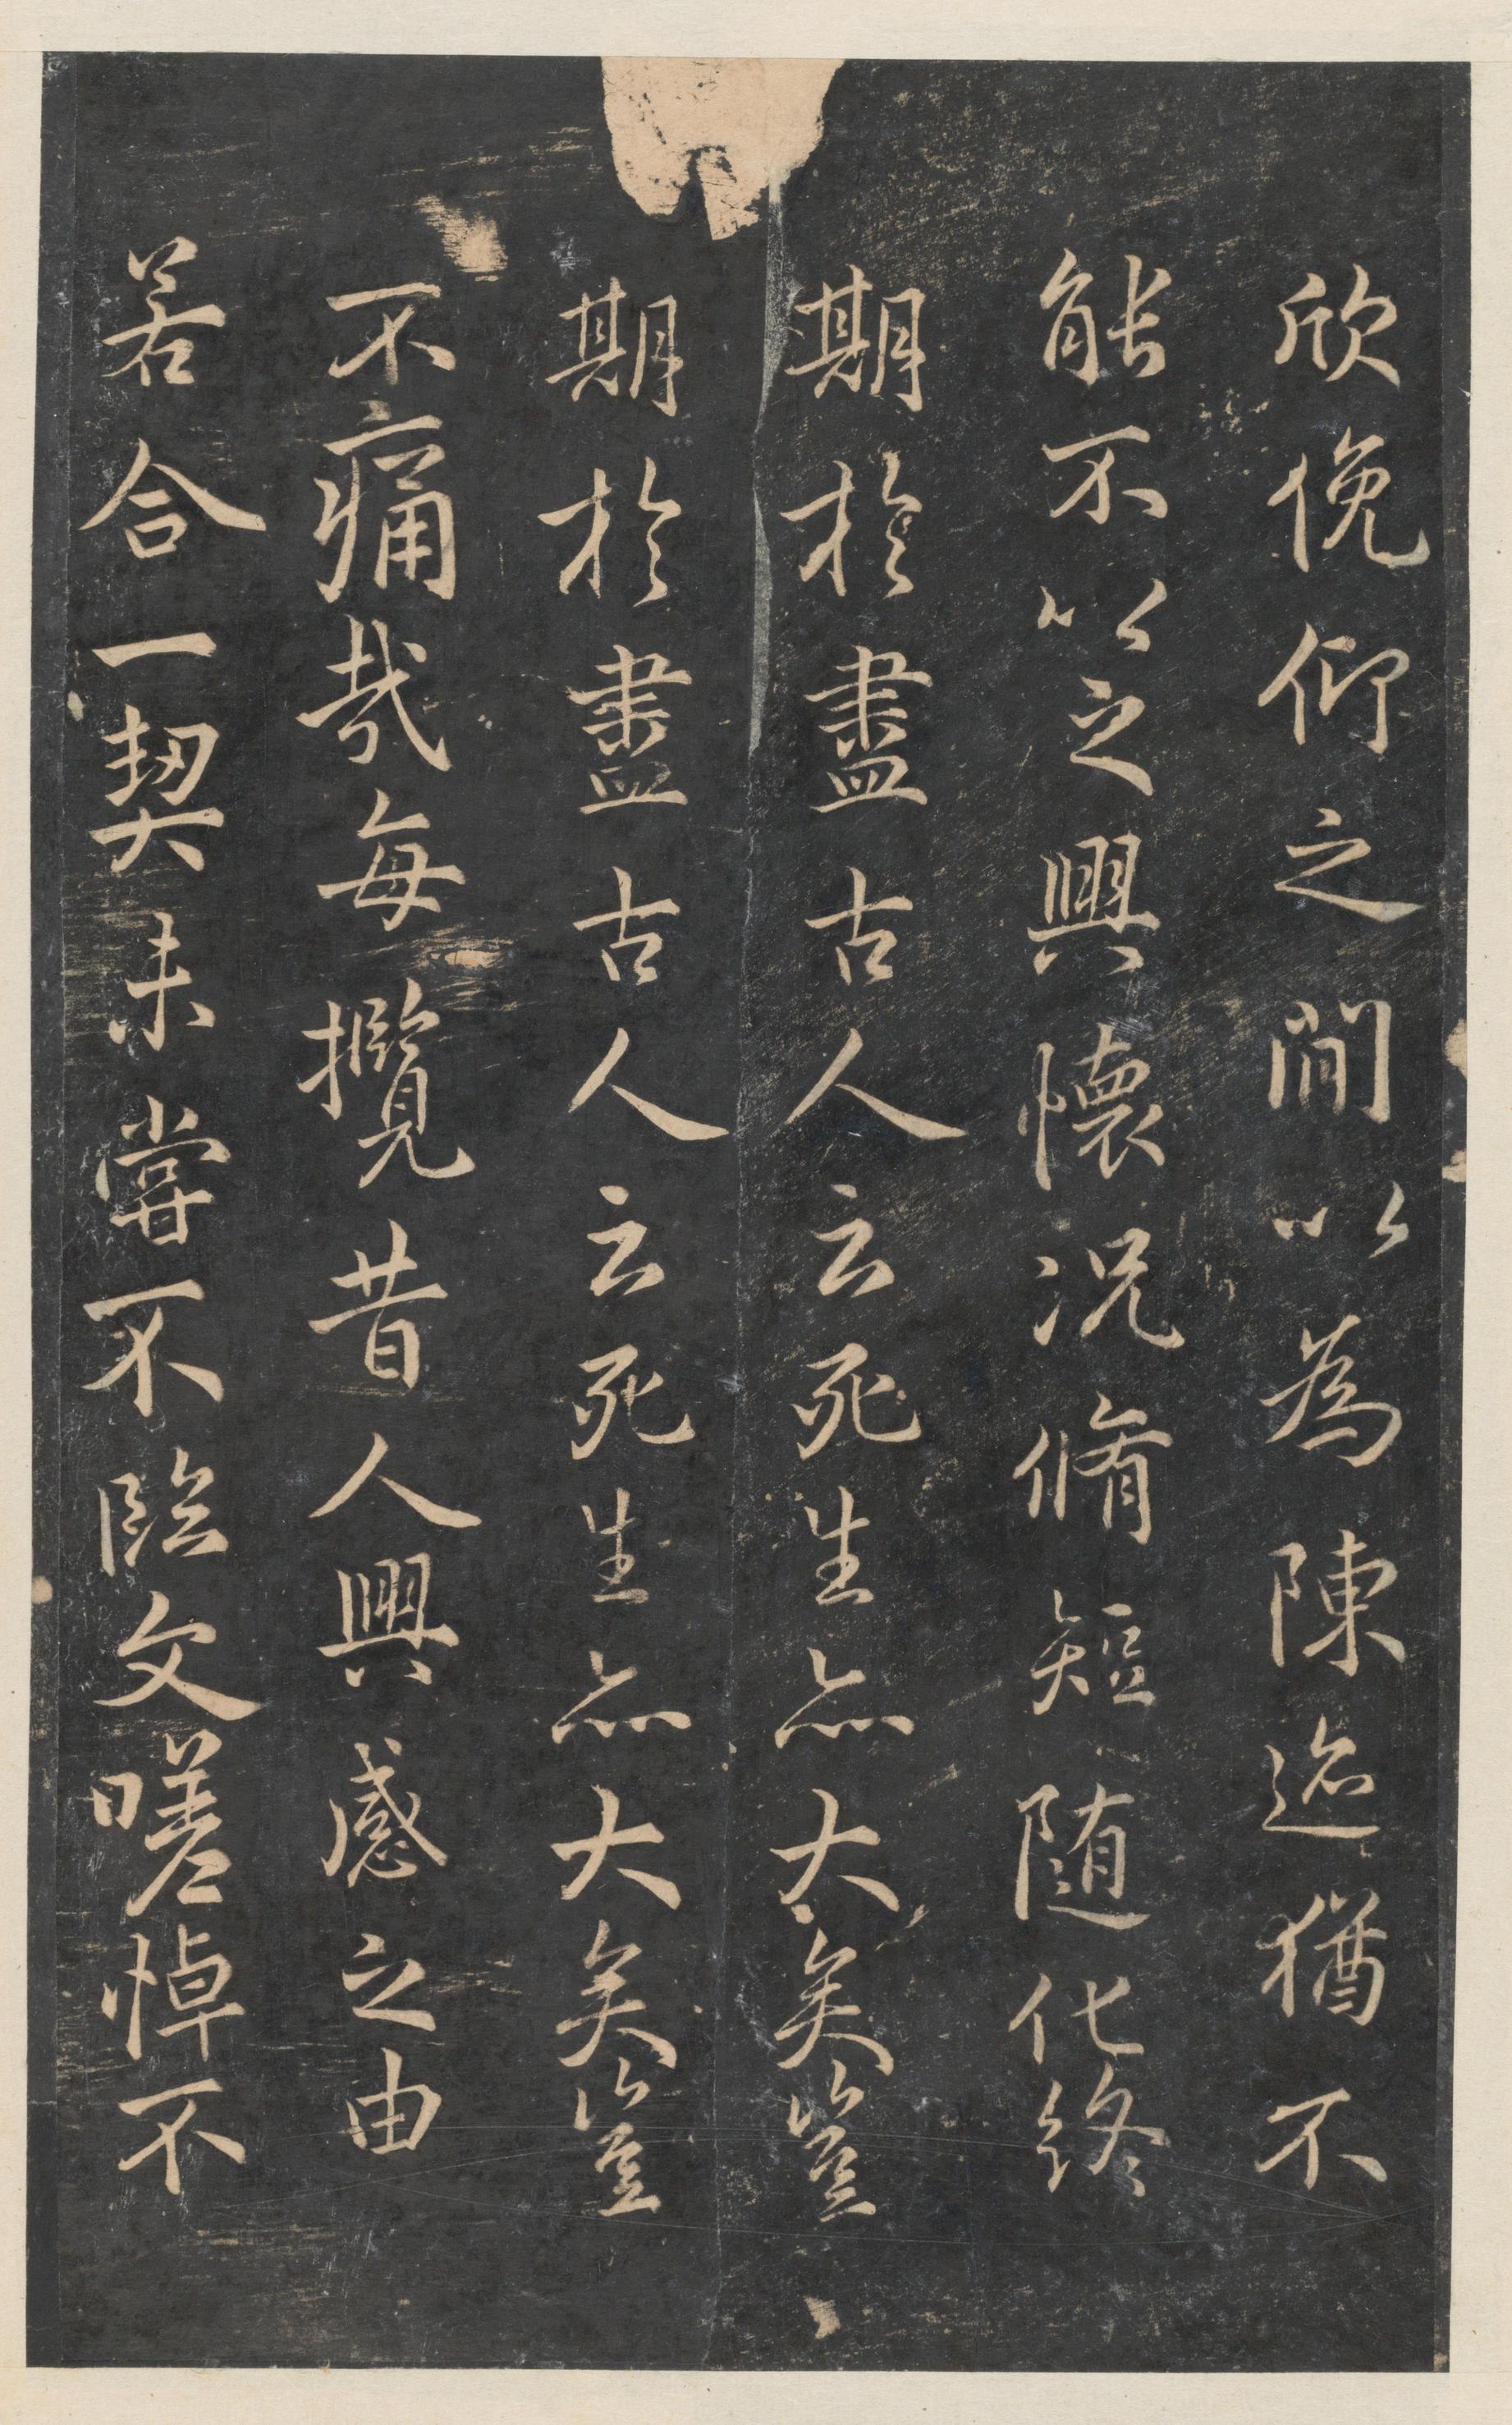 欣俛仰之閒以為陳迹猶不
能不以之興懷況脩短随化終
期於盡古人云死生亦大矣豈
期於盡古人云死生亦大矣豈
不痛哉每攬昔人興感之由
若合一契未嘗不臨文嗟悼不